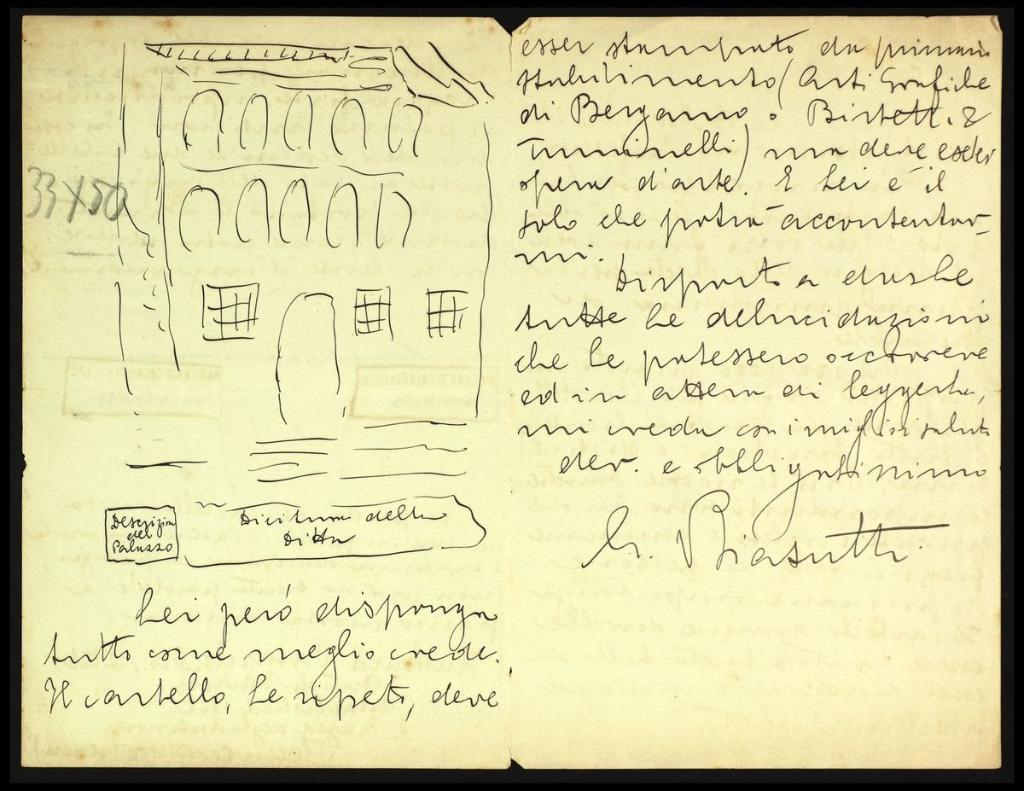 33 x 50
Descrizione
del
Palazzo
Dicitura della
Ditta
Lei però disponga
tutto come meglio crede.
Il cartello, Le ripeto, deve
esser stampato da primario
stabilimento (Arti Grafiche
di Bergamo o Bistetti &
Tumminelli) ma deve esser
opera d'arte. E Lei è il
solo che potrà accontentar-
mi.
Disposto a darLe
tutte le delucidazioni
che Le potessero occorrere
ed in attesa di leggerLa,
mi creda con i migliori saluti
dev. e obbligatissimo
G. Biasutti